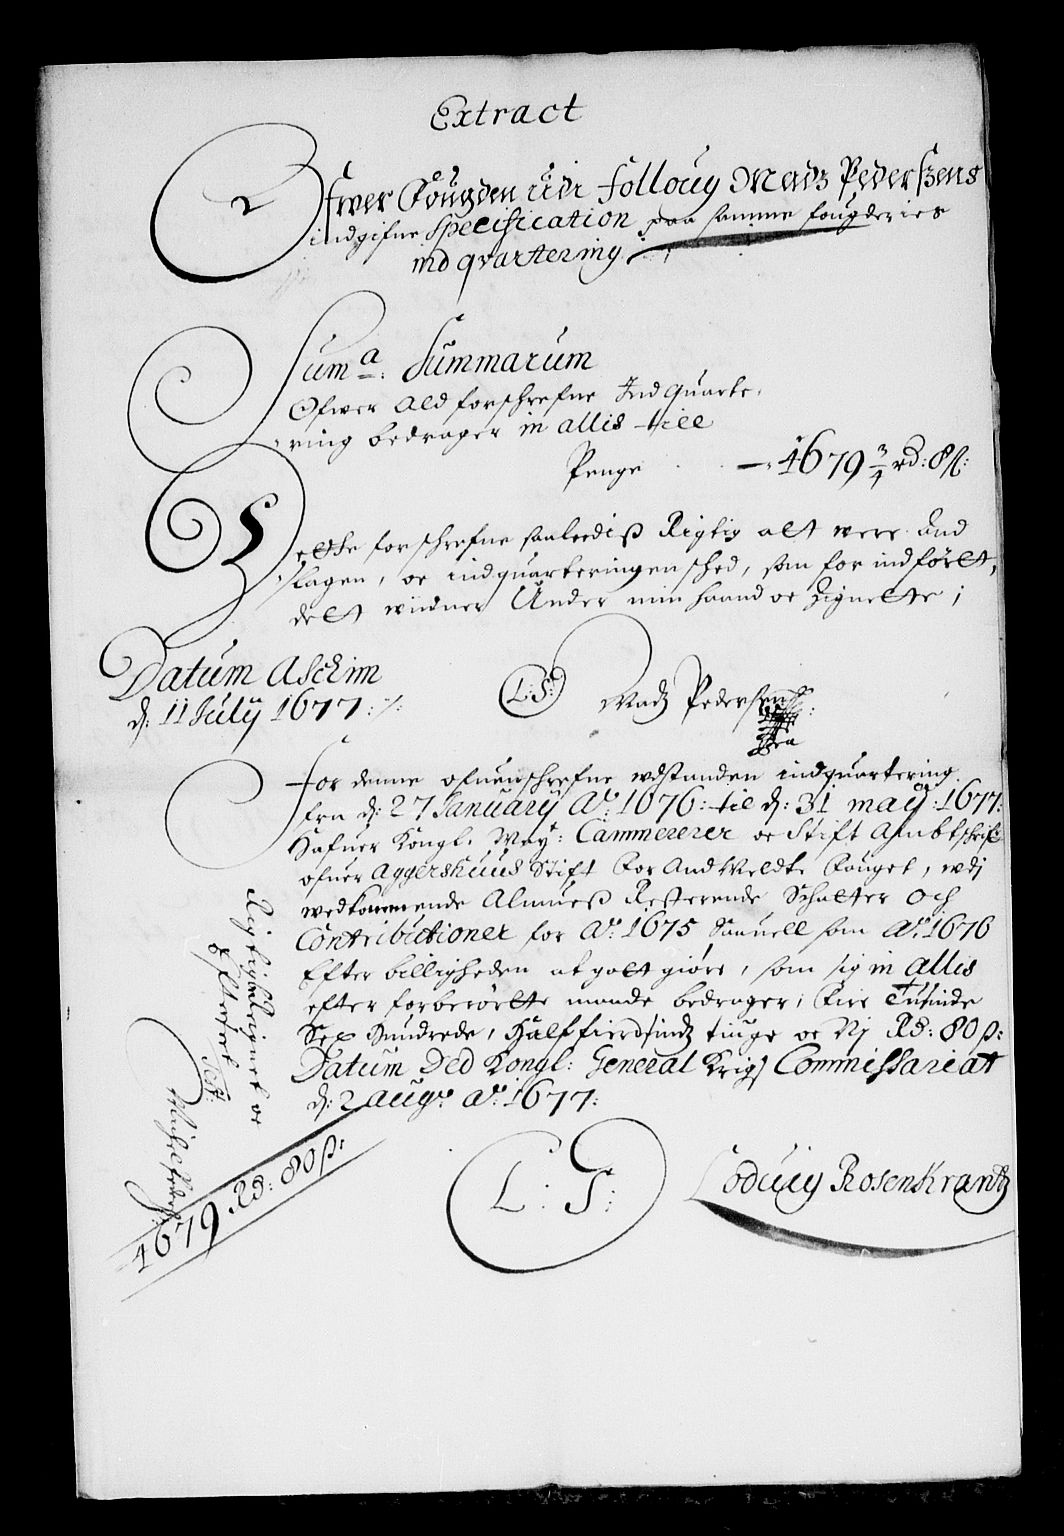 Extract
Ofwer Fougden udi Folloug Madz Pederszens
indgifne Specification paa samme fougderies
ind qvartering
Suma. Summarum
Ofwer ald forschrefne Ind quarte-
ring bedrager in allis till
Penge - 4679 3/4 rd: 8 ß:
Dette forschrefne saaledis Rigtig alt were And
slagen, oc indquarteringen sched, som for indført,
delt widner Under min haand oc Zignette;
Datum Aschim
d: 11 July 1677 ./.
L:S: Madz Pedersen
For denne ofuenschrefne udstanden indquartering
fra d: 27 January Ao 1676: til d: 31 may: 1677:
Hafuer Kongl. May: Cammererer oc Stift Ambtschrif:
ofuer Aggershuus Stift For And Meldte Fouget, udj
wedkommende Almues Resterende Schatter Och
Contributioner for Ao: 1675 Sauuell som Ao: 1676
Efter billigheden at got giøre, som sig in allis
efter forberørte maade bedrager; Fire Tusinde
Sex Hundrede, Halffierdsindz tiuge oc Nj Rd: 80 ß:
Datum Ded Kongl: General Krigs Commissariat
d: 2 augo ao: 1677:
L: S: Loduig Rosenkrantz
Rigtig beregnet oc
Efterset
Test:
4679 Rd: 80 ß: